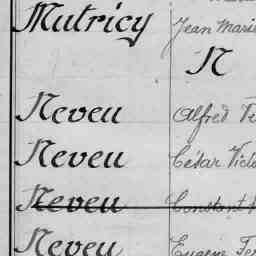 Mutricy Jean Marie
N
Neveu Alfred
Neveu César
Neveu Constant
Neveu Eugène